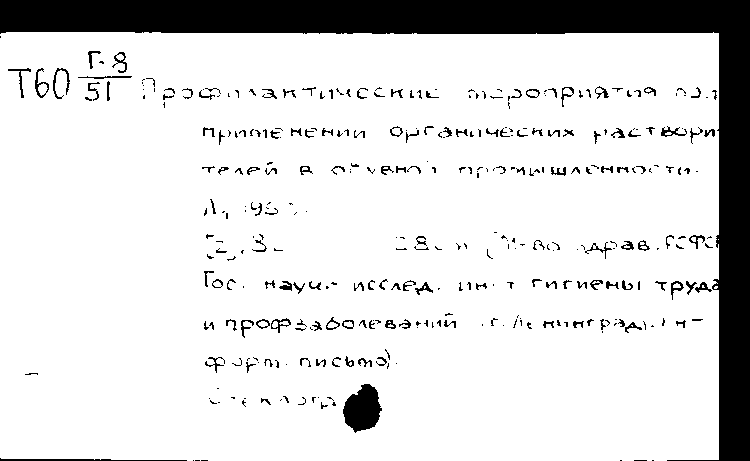 Т60 Г-8/51 Профилактические мероприятия
применении органических раствори
телей в обувной промышленности.
Л,
[2], 8
здрав. РСФСР
Гос. научн. исслед. ин-т гигиены труда
и профзаболеваний г. Ленинград). Ин-
форм. письмо).
Стеклогр